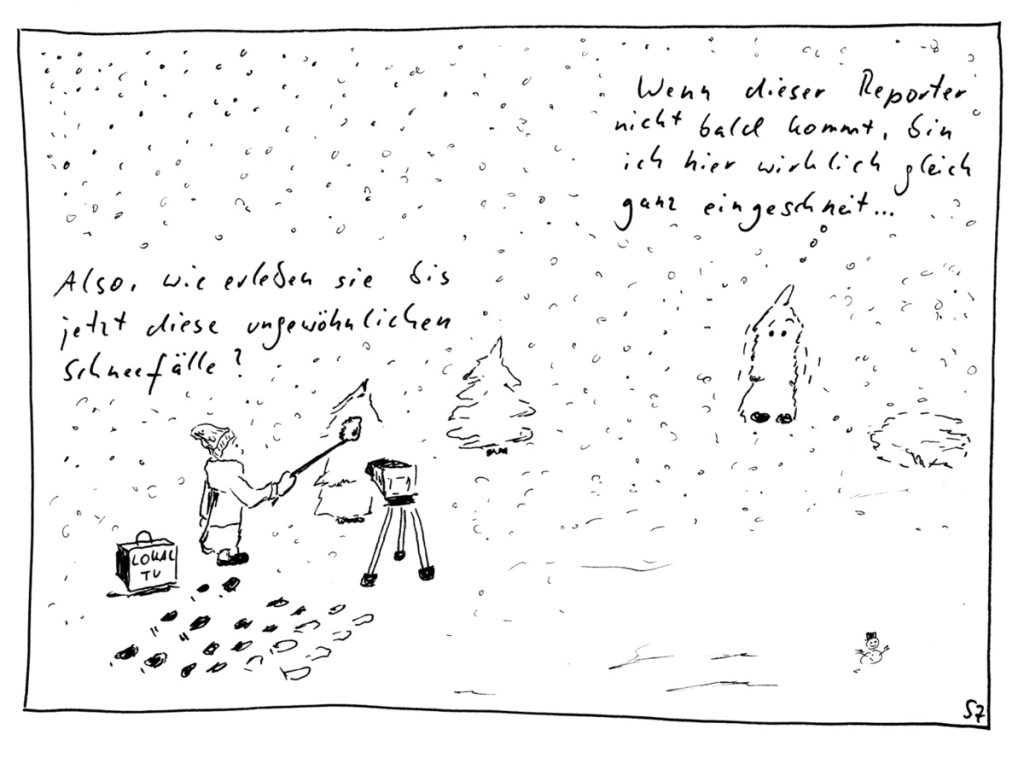 Wenn dieser Reporter
nicht bald kommt, bin
ich hier wirklich gleich
ganz eingeschneit...
Also, wie erleben sie bis
jetzt diese ungewöhnlichen
Schneefälle?
LOKAL
TV
S7